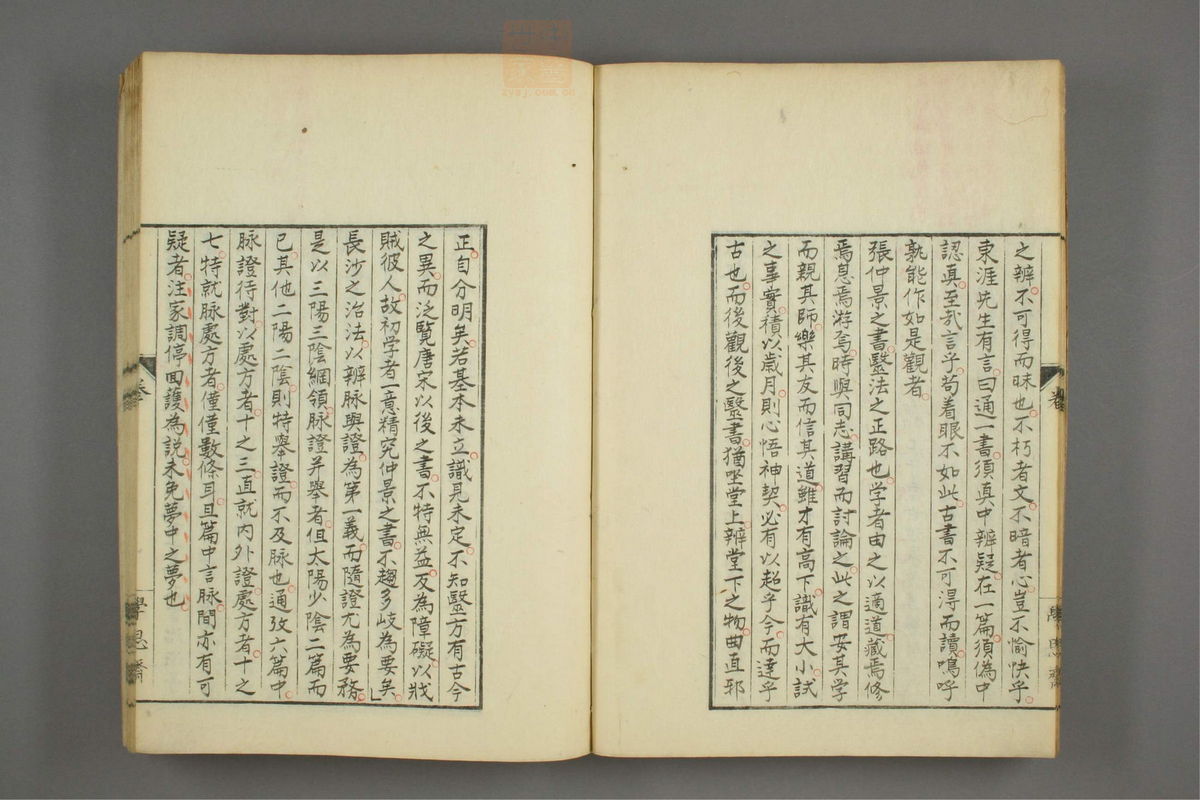 之辨不可得而昧也不朽者文不暗者心豈不愉快乎
東涯先生有言曰通一書須真中辨疑在一篇須偽中
認真至哉言乎苟着眼不如此古書不可得而讀嗚呼
孰能作如是觀者
張仲景之書毉法之正路也学者由之以適道藏焉修
焉息焉游焉時與同志講習而討論之此之謂安其学
而親其師樂其友而信其道雖才有高下識有大小試
之事實積以歲月則心悟神契必有以超乎今而達乎
古也而後觀後之毉書猶坐堂上辨堂下之物曲直邪
卷
學思齋
正自分明矣若基本未立識見未定不知毉方有古今
之異而泛覽唐宋以後之書不特無益反為障礙以戕
賊彼人故初学者一意精究仲景之書不趨多岐為要矣
長沙之治法以辨脉與證為第一義而隨證尤為要務
是以三陽三陰綱領脉證并舉者但太陽少陰二篇而
已其他二陽二陰則特舉證而不及脉也通攷六篇中
脉證待對以處方者十之三直就内外證處方者十之
七特就脉處方者僅僅數條耳且篇中言脉間亦有可
疑者注家調停回護為説未免夢中之夢也
卷
學思齋
zysj.com.cn